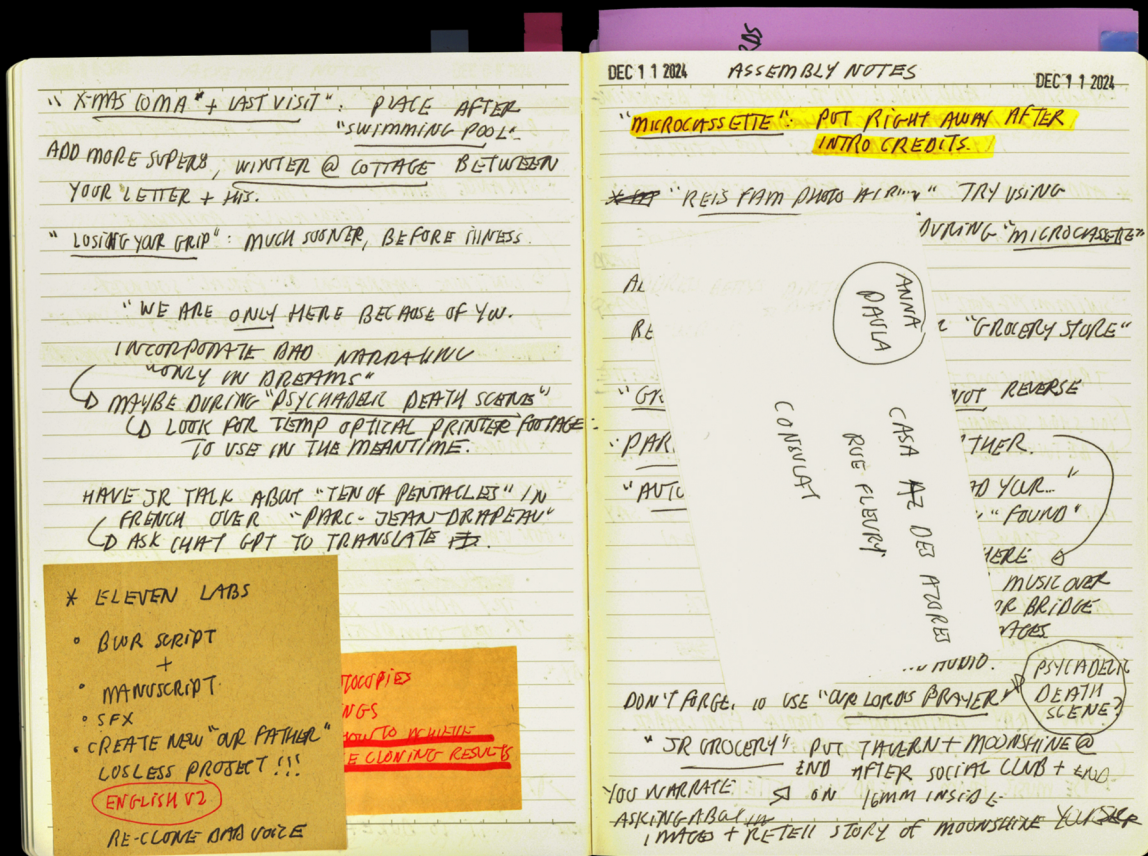 "X-MAS COMA" + LAST VISIT": PLACE AFTER
"SWIMMING POOL".
ADD MORE SUPER8, WINTER @ COTTAGE BETWEEN
YOUR LETTER + HIS.
"LOSING YOUR GRIP": MUCH SOONER, BEFORE ILLNESS.
"WE ARE ONLY HERE BECAUSE OF YOU.
INCORPORATE DAD NARRATING
"ONLY IN DREAMS"
MAYBE DURING "PSYCHADELIC DEATH SCENE")
LOOK FOR TEMP OPTICAL PRINTER FOOTAGE
TO USE IN THE MEANTIME.
HAVE JR TALK ABOUT "TEN OF PENTACLES" IN
FRENCH OVER "PARC-JEAN-DRAPEAU"
ASK CHAT GPT TO TRANSLATE
* ELEVEN LABS
BWR SCRIPT
+
MANUSCRIPT
SFX
CREATE NEW "OUR FATHER"
LOSLESS PROJECT!!!
ENGLISH V2
RE-CLONE DAD VOICE
TOCOPIES
NGS
HOW TO ACHIEVE
E CLONING RESULTS
DEC 11 2024 ASSEMBLY NOTES DEC 11 2024
"MICROCASSETTE": PUT RIGHT AWAY AFTER
INTRO CREDITS.
"REIS FAM PHOTO" TRY USING
DURING "MICROCASSETTE"
RE "GROCERY STORE"
"GR NOT REVERSE
PAR THER.
"AUTO AD YOUR..."
"FOUND"
HERE
MUSIC OVER
OR BRIDGE
AGES
AUDIO.
ANNA
PAULA
CASA AZ DES AZORES
RUE FLEURY
CONSULAT
DON'T FORGET TO USE "OUR LORDS PRAYER"
PSYCADELIC
DEATH
SCENE?
"JR GROCERY" PUT TAVERN + MOONSHINE @
END AFTER SOCIAL CLUB + END
YOU NARRATE ON 16MM INSIDE
ASKING ABOUT
IMAGES + RETELL STORY OF MOONSHINE